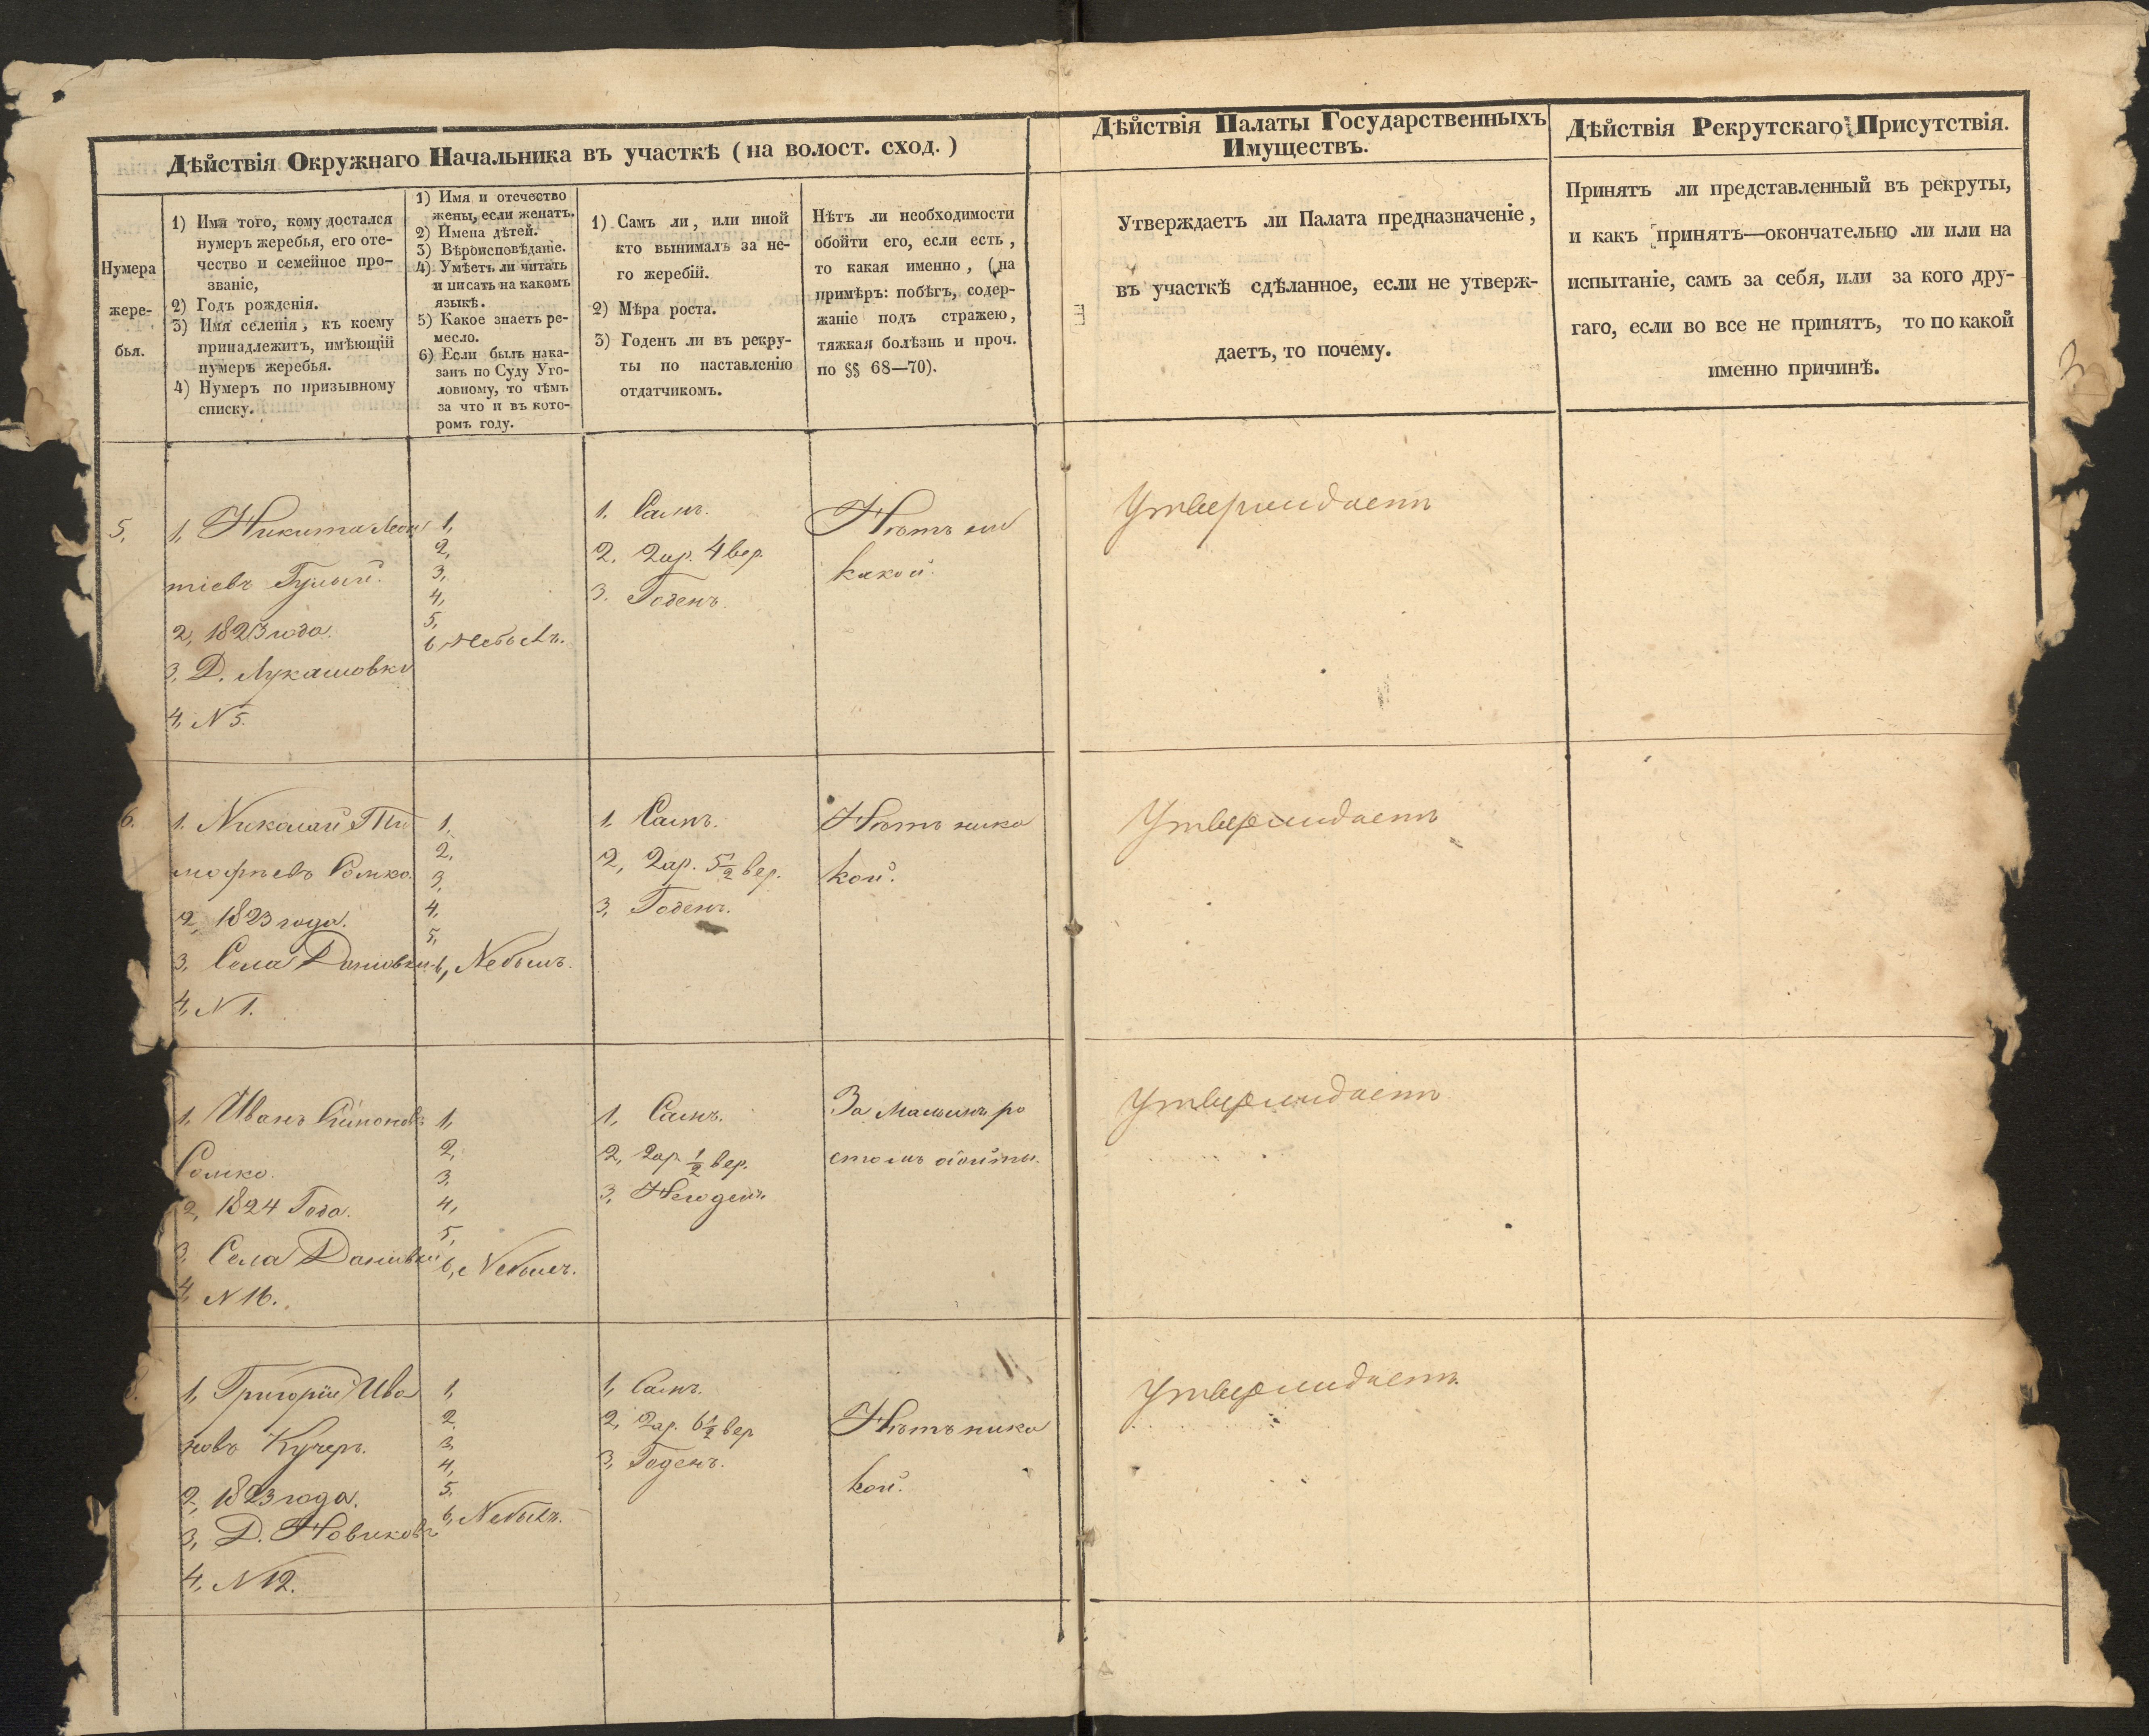 Дѣйствія Окружнаго Начальника въ участкѣ (на волост. сход.)
Дѣйствія Палаты Государственныхъ
Имуществъ.
Дѣйствія Рекрутскаго Присутствія.
Нумера
жере-
бья.
1) Имя того, кому достался
нумеръ жеребья, его оте-
чество и семейное про-
званіе,
2) Годъ рожденія.
3) Имя селенія, къ коему
принадлежитъ, имѣющій
нумеръ жеребья.
4) Нумеръ по призывному
списку.
1) Имя и отечество
жены, если женатъ.
2) Имена дѣтей.
3) Вѣроисповѣданіе.
4) Умѣетъ ли читать
и писать на какомъ
языкѣ.
5) Какое знаетъ ре-
месло.
6) Если былъ нака-
занъ по Суду Уго-
ловному, то чѣмъ
за что и въ кото-
ромъ году.
1) Самъ ли, или иной
кто вынималъ за не-
го жеребій.
2) Мѣра роста.
3) Годенъ ли въ рекру-
ты по наставленію
отдатчикомъ.
Нѣтъ ли необходимости
обойти его, если есть,
то какая именно, (на
примѣръ: побѣгъ, содер-
жаніе подъ стражею,
тяжкая болѣзнь и проч.
по §§ 68—70).
Утверждаетъ ли Палата предназначеніе,
въ участкѣ сдѣланное, если не утверж-
даетъ, то почему.
Принятъ ли представленный въ рекруты,
и какъ принятъ—окончательно ли или на
испытаніе, самъ за себя, или за кого дру-
гаго, если во все не принятъ, то по какой
именно причинѣ.
3
5,
1, Никита Леон
тіевъ Гулый.
2, 1823 года.
3, Д. Лукашовки
4, N 5.
1,
2,
3,
4,
5,
6, Небылъ.
1. Самъ.
2. 2 ар. 4 вер.
3. Годенъ.
Нѣтъ ни
какой.
Утверждаетъ
6.
1. Николай Ти
мофѣевъ Сомко.
2, 1823 года.
3, Села Даниловки
4, N 1.
1,
2,
3,
4,
5,
6, Небылъ.
1. Самъ.
2, 2 ар. 5½ вер.
3, Годенъ.
Нѣтъ ника
кой.
Утверждаетъ
1, Иванъ Симоновъ
Сомко.
2, 1824 Года.
3, Села Даниловки
4, N 16.
1,
2,
3,
4,
5,
6, Небылъ.
1, Самъ.
2, 2 ар. ½ вер.
3, Негоденъ
За Малымъ ро
стомъ обойты.
Утверждаетъ
1, Григорій Ива
новъ Кучеръ.
2, 1823 года.
3, Д. Новиковъ
4, N 12.
1,
2,
3,
4,
5,
6, Небылъ.
1, Самъ.
2, 2 ар. 6½ вер
3, Годенъ.
Нѣтъ ника
кой.
Утверждаетъ.